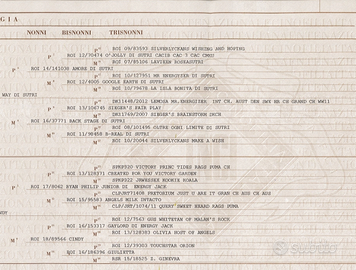 GIA
NONNI BISNONNI TRISNONNI
P ROI 09/83593 SILVERLYCKANS WISHING AND HOPING
P ROI 12/70474 O'JOLLY DI SUTRI CACIB CAC 3 CAC CMKU
M ROI 07/85106 LAVIEEN ROSEASUTRI
P ROI 14/141036 AMORE DI SUTRI
P ROI 10/127951 MR ENERGYZER DI SUTRI
M ROI 12/4005 GOOGLE EARTH DI SUTRI
M ROI 10/79678 LA ISLA BONITA DI SUTRI
WAY DI SUTRI
P DK11448/2011 LEMOSA MR.ENERGIZER INT CH, AUST DEN SWX BR CH GRAND CH WW11
P ROI 13/106745 SIEGER'S FAIR PLAY
M DK11769/2007 SIEGER'S BRAINSTORM DKCH
M ROI 16/37771 BACK STAGE DI SUTRI
P ROI 08/101495 OLTRE OGNI LIMITE DI SUTRI
M ROI 11/90458 B-REAL DI SUTRI
M ROI 10/20044 SILVERLYCKANS MAKE A WISH
P VICTORY PRINC TIDES RAGS PUMA CH
P ROI 13/128371 CREATED FOR YOU VICTORY GARDEN
M JHAWESEK ROOKIE KOALA
P ROI 17/8062 RYAN PHILLIP JUNIOR DI ENERGY JACK
P PRETORIUM JUST U ARE IT GRAN CH AUS CH AUS
M ROI 15/99583 ANGELS MILK INTACTO
M QUERY SWEET BEARD RAGS PUMA
P ROI 12/7563 GUS WHITETAN OF MALAN'S ROCK
P ROI 16/153317 GAYLORD DI ENERGY JACK
M ROI 13/128383 OLIVIA HOST OF ANGELS
M ROI 18/89564 CINDY
P ROI 12/39303 YOUCSTAR ORION
M ROI 16/186296 GIULIETTA
M RSR 15/18525 Z. GINEVRA